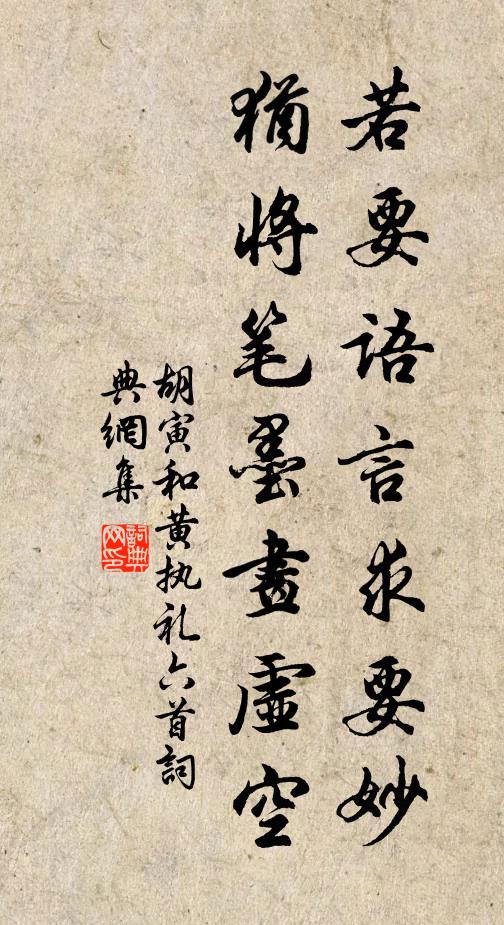 若要语言求要妙
犹将笔墨畫虚空
胡寅和黄执礼六首詞
典網集
詞典网印